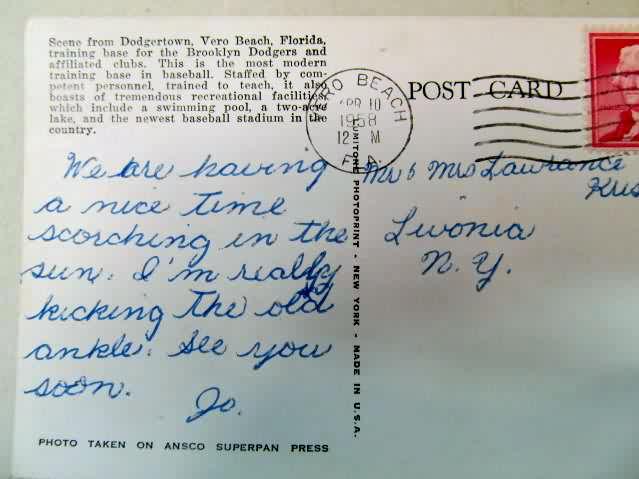 Scene from Dodgertown, Vero Beach, Florida,
training base for the Brooklyn Dodgers and
affiliated clubs. This is the most modern
training base in baseball. Staffed by com-
petent personnel, trained to teach, it also
boasts of tremendous recreational facilities,
which include a swimming pool, a two-acre
lake, and the newest baseball stadium in the
country.
VERO BEACH
APR 10
1958
12 M
FLA.
POST CARD
We are having
a nice time
scorching in the
sun. I'm really
kicking the old
ankle. See you
soon.
Jo.
Mr & Mrs Lawrance
Livonia
N.Y.
LUMITONE PHOTOPRINT - NEW YORK - MADE IN U.S.A.
PHOTO TAKEN ON ANSCO SUPERPAN PRESS